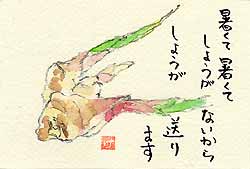 暑くて暑くて
しょうがないから
しょうが
送り
ます